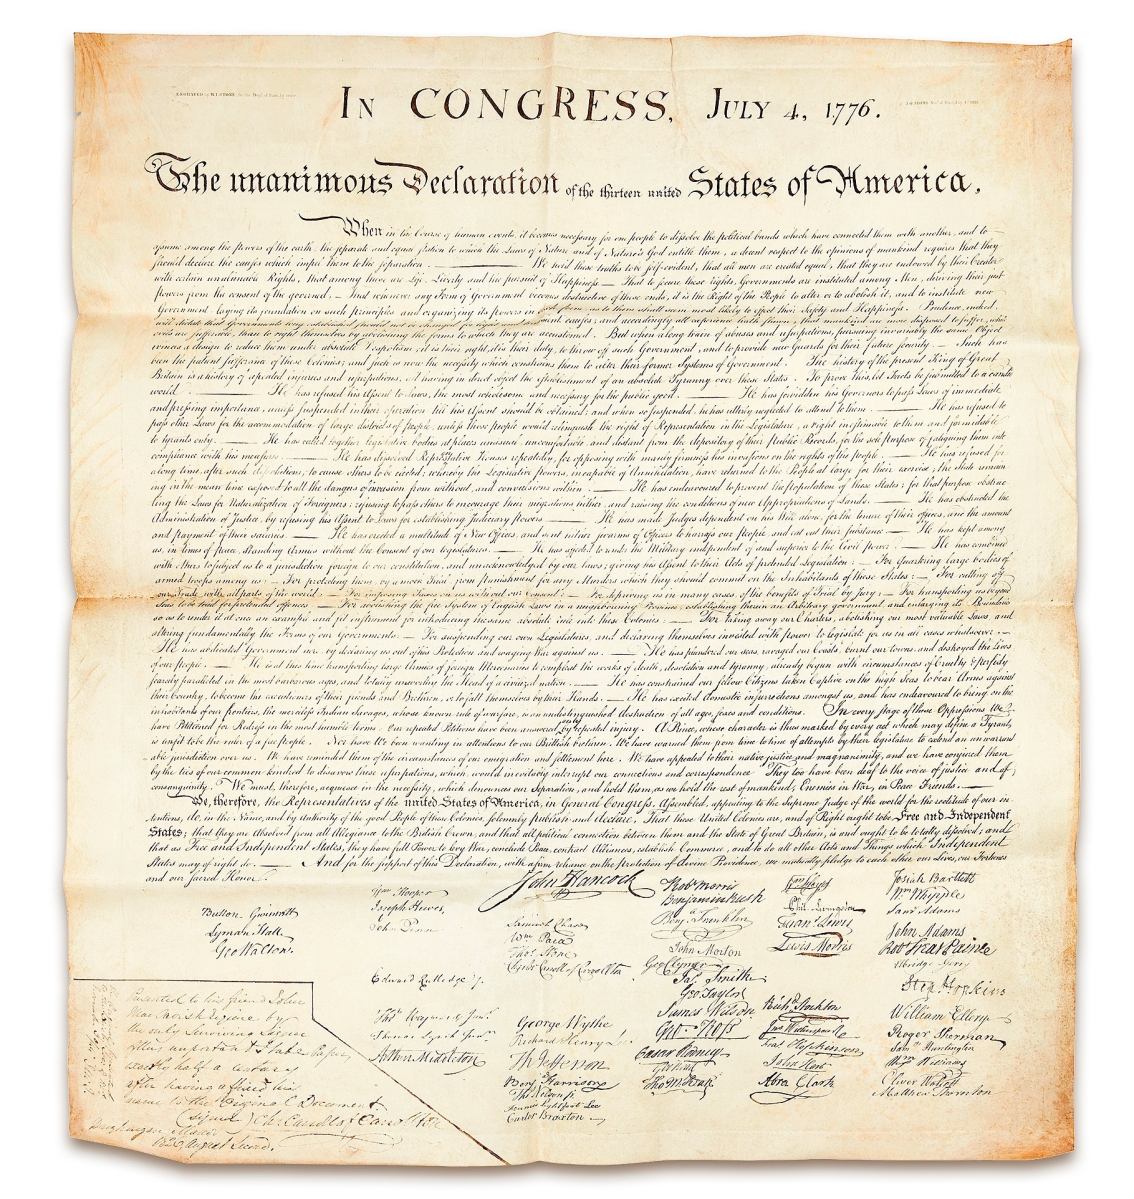 ENGRAVED by W.I. STONE
IN CONGRESS, JULY 4, 1776.
The unanimous Declaration of the thirteen united States of America,
When in the Course of human events, it becomes necessary for one people to dissolve the political bands which have connected them with another, and to
assume among the powers of the earth, the separate and equal station to which the Laws of Nature and of Nature's God entitle them, a decent respect to the opinions of mankind requires that they
should declare the causes which impel them to the separation. We hold these truths to be self-evident, that all men are created equal, that they are endowed by their Creator
with certain unalienable Rights, that among these are Life, Liberty and the pursuit of Happiness — That to secure these rights, Governments are instituted among Men, deriving their just
powers from the consent of the governed, — That whenever any Form of Government becomes destructive of these ends, it is the Right of the People to alter or to abolish it, and to institute new
Government, laying its foundation on such principles and organizing its powers in such form, as to them shall seem most likely to effect their Safety and Happiness. Prudence, indeed,
will dictate that Governments long established should not be changed for light and transient causes; and accordingly all experience hath shewn, that mankind are more disposed to suffer, while
evils are sufferable, than to right themselves by abolishing the forms to which they are accustomed. But when a long train of abuses and usurpations, pursuing invariably the same Object
evinces a design to reduce them under absolute Despotism, it is their right, it is their duty, to throw off such Government, and to provide new Guards for their future security. — Such has
been the patient sufferance of these Colonies; and such is now the necessity which constrains them to alter their former Systems of Government. The history of the present King of Great
Britain is a history of repeated injuries and usurpations, all having in direct object the establishment of an absolute Tyranny over these States. To prove this, let Facts be submitted to a candid
world. He has refused his Assent to Laws, the most wholesome and necessary for the public good. He has forbidden his Governors to pass Laws of immediate
and pressing importance, unless suspended in their operation till his Assent should be obtained; and when so suspended, he has utterly neglected to attend to them. He has refused to
pass other Laws for the accommodation of large districts of people, unless those people would relinquish the right of Representation in the Legislature, a right inestimable to them and formidable
to tyrants only. He has called together legislative bodies at places unusual, uncomfortable, and distant from the depository of their Public Records, for the sole purpose of fatiguing them into
compliance with his measures. He has dissolved Representative Houses repeatedly, for opposing with manly firmness his invasions on the rights of the people. He has refused for
a long time, after such dissolutions, to cause others to be elected; whereby the Legislative powers, incapable of Annihilation, have returned to the People at large for their exercise; the State remain
ing in the mean time exposed to all the dangers of invasion from without, and convulsions within. He has endeavoured to prevent the population of these States; for that purpose obstruc
ting the Laws for Naturalization of Foreigners; refusing to pass others to encourage their migrations hither, and raising the conditions of new Appropriations of Lands. He has obstructed the
Administration of Justice, by refusing his Assent to Laws for establishing Judiciary powers. He has made Judges dependent on his Will alone, for the tenure of their offices, and the amount
and payment of their salaries. He has erected a multitude of New Offices, and sent hither swarms of Officers to harrass our people, and eat out their substance. He has kept among
us, in times of peace, Standing Armies without the Consent of our legislatures. He has affected to render the Military independent of and superior to the Civil power. He has combined
with others to subject us to a jurisdiction foreign to our constitution, and unacknowledged by our laws; giving his Assent to their Acts of pretended Legislation: For Quartering large bodies of
armed troops among us: — For protecting them, by a mock Trial, from punishment for any Murders which they should commit on the Inhabitants of these States: — For cutting off
our Trade with all parts of the world: — For imposing Taxes on us without our Consent: For depriving us in many cases, of the benefits of Trial by Jury: — For transporting us beyond
Seas to be tried for pretended offences — For abolishing the free System of English Laws in a neighbouring Province, establishing therein an Arbitrary government, and enlarging its Boundaries
so as to render it at once an example and fit instrument for introducing the same absolute rule into these Colonies: For taking away our Charters, abolishing our most valuable Laws, and
altering fundamentally the Forms of our Governments: — For suspending our own Legislatures, and declaring themselves invested with power to legislate for us in all cases whatsoever. —
He has abdicated Government here, by declaring us out of his Protection and waging War against us. He has plundered our seas, ravaged our Coasts, burnt our towns, and destroyed the Lives
of our people. He is at this time transporting large Armies of foreign Mercenaries to compleat the works of death, desolation and tyranny, already begun with circumstances of Cruelty & perfidy
scarcely paralleled in the most barbarous ages, and totally unworthy the Head of a civilized nation. He has constrained our fellow Citizens taken Captive on the high Seas to bear Arms against
their Country, to become the executioners of their friends and Brethren, or to fall themselves by their Hands. He has excited domestic insurrections amongst us, and has endeavoured to bring on the
inhabitants of our frontiers, the merciless Indian Savages, whose known rule of warfare, is an undistinguished destruction of all ages, sexes and conditions. In every stage of these Oppressions We
have Petitioned for Redress in the most humble terms: Our repeated Petitions have been answered only by repeated injury. A Prince, whose character is thus marked by every act which may define a Tyrant,
is unfit to be the ruler of a free people. Nor have We been wanting in attentions to our Brittish brethren. We have warned them from time to time of attempts by their legislature to extend an unwarrant
able jurisdiction over us. We have reminded them of the circumstances of our emigration and settlement here. We have appealed to their native justice and magnanimity, and we have conjured them
by the ties of our common kindred to disavow these usurpations, which, would inevitably interrupt our connections and correspondence. They too have been deaf to the voice of justice and of
consanguinity. We must, therefore, acquiesce in the necessity, which denounces our Separation, and hold them, as we hold the rest of mankind, Enemies in War, in Peace Friends.
We, therefore, the Representatives of the united States of America, in General Congress, Assembled, appealing to the Supreme Judge of the world for the rectitude of our in
tentions, do, in the Name, and by Authority of the good People of these Colonies, solemnly publish and declare, That these United Colonies are, and of Right ought to be Free and Independent
States; that they are Absolved from all Allegiance to the British Crown, and that all political connection between them and the State of Great Britain, is and ought to be totally dissolved; and
that as Free and Independent States, they have full Power to levy War, conclude Peace, contract Alliances, establish Commerce, and to do all other Acts and Things which Independent
States may of right do. And for the support of this Declaration, with a firm reliance on the protection of divine Providence, we mutually pledge to each other our Lives, our Fortunes
and our sacred Honor.
Button Gwinnett
Lyman Hall
Geo Walton.
Wm Hooper
Joseph Hewes,
John Penn
Edward Rutledge
Thos Heyward Junr
Thomas Lynch Junr
Arthur Middleton
John Hancock
Samuel Chase
Wm Paca
Thos Stone
Charles Carroll of Carrollton
George Wythe
Richard Henry Lee
Th Jefferson
Benj Harrison
Thos Nelson jr
Francis Lightfoot Lee
Carter Braxton
Robt Morris
Benjamin Rush
Benja Franklin
John Morton
Geo Clymer
Jas Smith
Geo Taylor
James Wilson
Geo Ross
Caesar Rodney
Geo Read
Tho M:Kean
Wm Floyd
Phil. Livingston
Frans Lewis
Lewis Morris
Richd Stockton
Jno Witherspoon
Fras Hopkinson
John Hart
Abra Clark
Josiah Bartlett
Wm Whipple
Saml Adams
John Adams
Robt Treat Paine
Elbridge Gerry
Step Hopkins
William Ellery
Roger Sherman
Saml Huntington
Wm Williams
Oliver Wolcott
Matthew Thornton
Presented to his friend John
MacTavish Esquire by
the only Surviving Signer
of this important State Paper,
exactly half a century
after having affixed his
name to the Original Document
(signed) Ch. Carroll of Carrollton
Doughoregan Manor
1826 August Second.